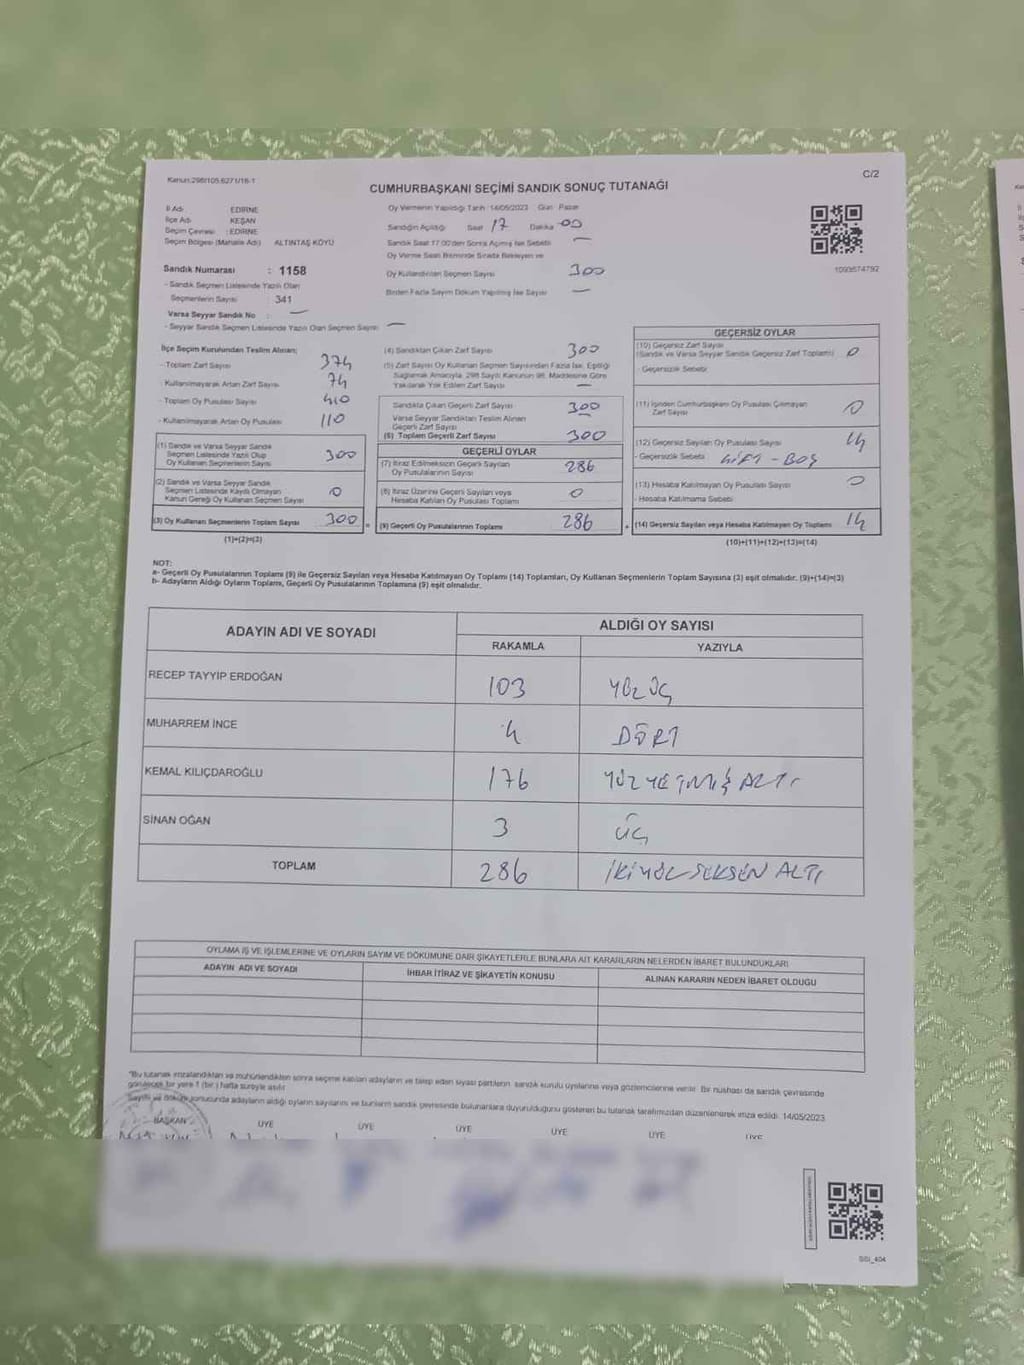 Kanun:298/105,6271/16-1
C/2
CUMHURBAŞKANI SEÇİMİ SANDIK SONUÇ TUTANAĞI
İl Adı : EDİRNE
İlçe Adı : KEŞAN
Seçim Çevresi : EDİRNE
Seçim Bölgesi (Mahalle Adı) ALTINTAŞ KÖYÜ
Sandık Numarası : 1158
- Sandık Seçmen Listesinde Yazılı Olan
Seçmenlerin Sayısı : 341
Varsa Seyyar Sandık No : —
- Seyyar Sandık Seçmen Listesinde Yazılı Olan Seçmen Sayısı —
Oy Vermenin Yapıldığı Tarih :14/05/2023 Gün : Pazar
Sandığın Açıldığı Saat 17 Dakika 00
Sandık Saat 17:00'den Sonra Açılmış İse Sebebi —
Oy Verme Saati Bitiminde Sırada Bekleyen ve
Oy Kullandırılan Seçmen Sayısı 300
Birden Fazla Sayım Döküm Yapılmış İse Sayısı —
1093574792
İlçe Seçim Kurulundan Teslim Alınan;
- Toplam Zarf Sayısı 374
- Kullanılmayarak Artan Zarf Sayısı 74
- Toplam Oy Pusulası Sayısı 410
- Kullanılmayarak Artan Oy Pusulası 110
(1) Sandık ve Varsa Seyyar Sandık
Seçmen Listesinde Yazılı Olup
Oy Kullanan Seçmenlerin Sayısı 300
(2) Sandık ve Varsa Seyyar Sandık
Seçmen Listesinde Kayıtlı Olmayan
Kanun Gereği Oy Kullanan Seçmen Sayısı 0
(3) Oy Kullanan Seçmenlerin Toplam Sayısı 300 =
(1)+(2)=(3)
(4) Sandıktan Çıkan Zarf Sayısı 300
(5) Zarf Sayısı Oy Kullanan Seçmen Sayısından Fazla İse, Eşitliği
Sağlamak Amacıyla, 298 Sayılı Kanunun 98. Maddesine Göre
Yakılarak Yok Edilen Zarf Sayısı —
Sandıkta Çıkan Geçerli Zarf Sayısı 300
Varsa Seyyar Sandıktan Teslim Alınan
Geçerli Zarf Sayısı —
(6) Toplam Geçerli Zarf Sayısı 300
GEÇERLİ OYLAR
(7) İtiraz Edilmeksizin Geçerli Sayılan
Oy Pusulalarının Sayısı 286
(8) İtiraz Üzerine Geçerli Sayılan veya
Hesaba Katılan Oy Pusulası Toplamı 0
(9) Geçerli Oy Pusulalarının Toplamı 286 +
GEÇERSİZ OYLAR
(10) Geçersiz Zarf Sayısı
(Sandık ve Varsa Seyyar Sandık Geçersiz Zarf Toplamı) 0
- Geçersizlik Sebebi
(11) İçinden Cumhurbaşkanı Oy Pusulası Çıkmayan
Zarf Sayısı 0
(12) Geçersiz Sayılan Oy Pusulası Sayısı 14
- Geçersizlik Sebebi : ÇİFT - BOŞ
(13) Hesaba Katılmayan Oy Pusulası Sayısı 0
- Hesaba Katılmama Sebebi
(14) Geçersiz Sayılan veya Hesaba Katılmayan Oy Toplamı 14
(10)+(11)+(12)+(13)=(14)
NOT:
a- Geçerli Oy Pusulalarının Toplamı (9) ile Geçersiz Sayılan veya Hesaba Katılmayan Oy Toplamı (14) Toplamları, Oy Kullanan Seçmenlerin Toplam Sayısına (3) eşit olmalıdır. (9)+(14)=(3)
b- Adayların Aldığı Oyların Toplamı, Geçerli Oy Pusulalarının Toplamına (9) eşit olmalıdır.
ADAYIN ADI VE SOYADI ALDIĞI OY SAYISI
RAKAMLA YAZIYLA
RECEP TAYYİP ERDOĞAN 103 YÜZ ÜÇ
MUHARREM İNCE 4 DÖRT
KEMAL KILIÇDAROĞLU 176 YÜZ YETMİŞ ALTI
SİNAN OĞAN 3 ÜÇ
TOPLAM 286 İKİYÜZ SEKSEN ALTI
OYLAMA İŞ VE İŞLEMLERİNE VE OYLARIN SAYIM VE DÖKÜMÜNE DAİR ŞİKAYETLERLE BUNLARA AİT KARARLARIN NELERDEN İBARET BULUNDUKLARI
ADAYIN ADI VE SOYADI İHBAR İTİRAZ VE ŞİKAYETİN KONUSU ALINAN KARARIN NEDEN İBARET OLDUĞU
"Bu tutanak imzalandıktan ve mühürlendikten sonra seçime katılan adayların ve talep eden siyasi partilerin sandık kurulu üyelerine veya gözlemcilerine verilir. Bir nüshası da sandık çevresinde
görülecek bir yere 1 (bir ) hafta süreyle asılır
Sayım ve döküm sonucunda adayların aldığı oyların sayılarını ve bunların sandık çevresinde bulunanlara duyurulduğunu gösteren bu tutanak tarafımızdan düzenlenerek imza edildi. 14/05/2023
BAŞKAN ÜYE ÜYE ÜYE ÜYE ÜYE ÜYE